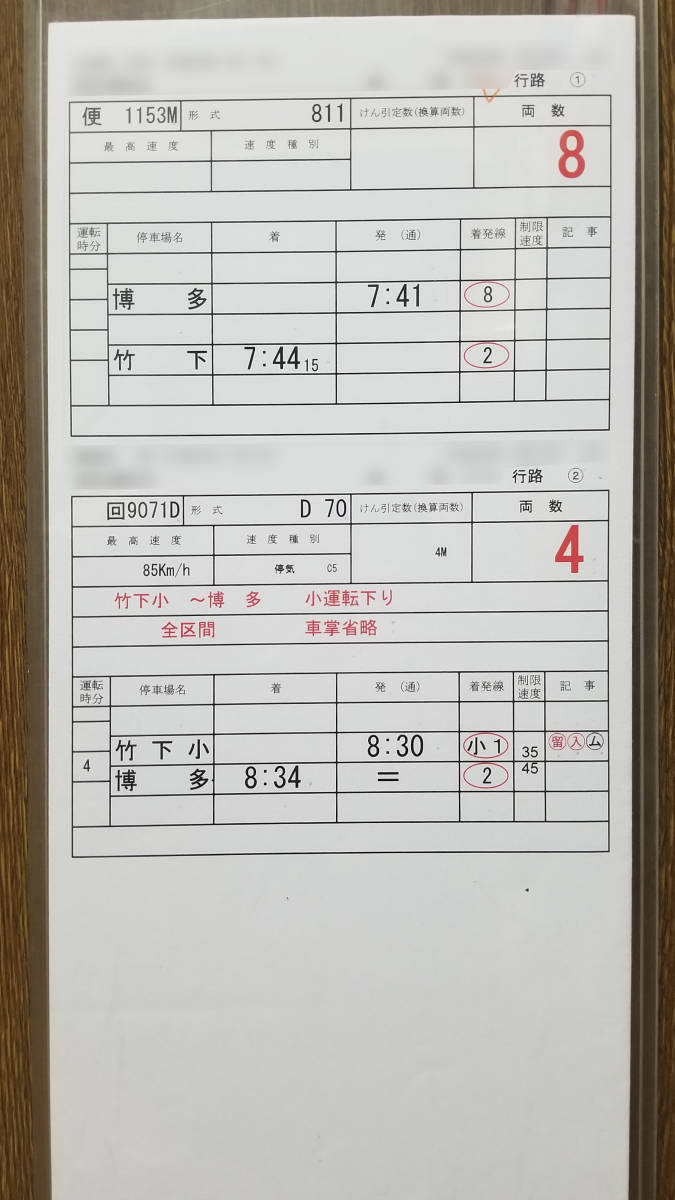 行路 ①
便 1153M 形式 811 けん引定数(換算両数) 両数
最高速度 速度種別 8
運転時分 停車場名 着 発(通) 着発線 制限速度 記事
博多 7:41 8
竹下 7:44 15 2
行路 ②
回9071D 形式 D 70 けん引定数(換算両数) 両数
最高速度 速度種別 4M 4
85Km/h 停気 C5
竹下小 ～博多 小運転下り
全区間 車掌省略
運転時分 停車場名 着 発(通) 着発線 制限速度 記事
竹下小 8:30 小1 35 留入ム
4
博多 8:34 = 2 45